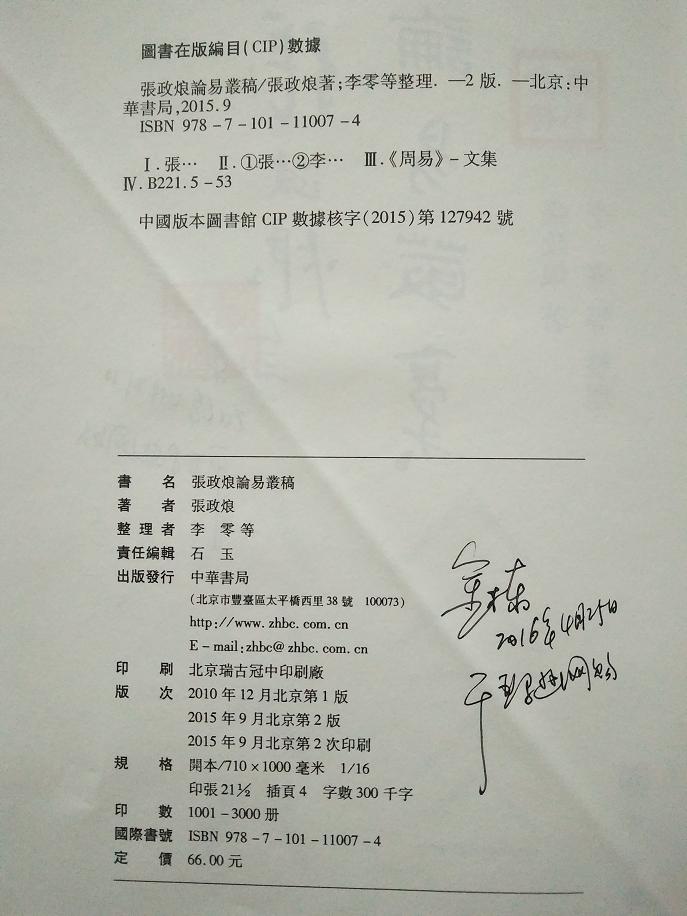 圖書在版編目(CIP)數據
張政烺論易叢稿/張政烺著;李零等整理. —2 版. —北京:中
華書局,2015.9
ISBN 978-7-101-11007-4
Ⅰ.張… Ⅱ.①張…②李… Ⅲ.《周易》-文集
Ⅳ.B221.5-53
中國版本圖書館 CIP 數據核字(2015)第 127942 號
書 名 張政烺論易叢稿
著 者 張政烺
整 理 者 李 零 等
責任編輯 石 玉
出版發行 中華書局
(北京市豐臺區太平橋西里 38 號 100073)
http://www.zhbc.com.cn
E-mail:zhbc@zhbc.com.cn
印 刷 北京瑞古冠中印刷廠
版 次 2010 年 12 月北京第 1 版
2015 年 9 月北京第 2 版
2015 年 9 月北京第 2 次印刷
規 格 開本/710×1000 毫米 1/16
印張 21½ 插頁 4 字數 300 千字
印 數 1001-3000 册
國際書號 ISBN 978-7-101-11007-4
定 價 66.00 元
金栋
2016年4月25日